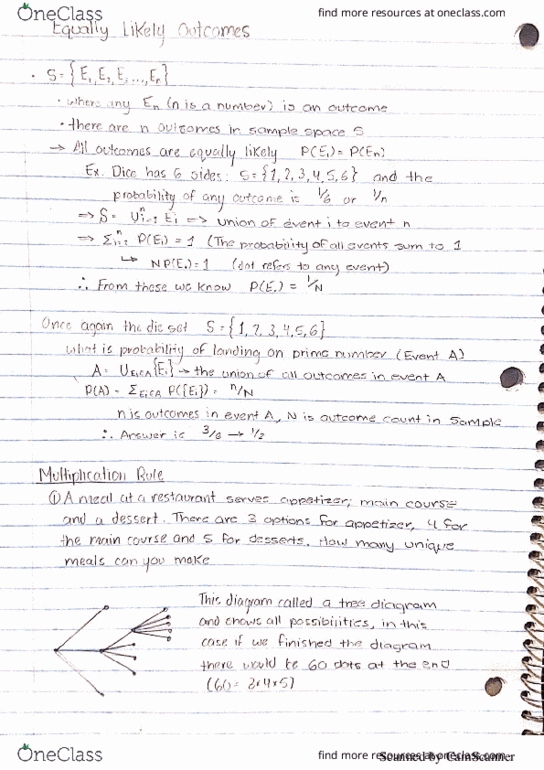 OneClass
find more resources at oneclass.com
Equally Likely Outcomes
· S = {E₁, E₂, Eᵢ ..., Eₙ}
· where any Eₙ (n is a number) is an outcome
· there are n outcomes in sample space S
→ All outcomes are equally likely P(E₁) = P(Eₙ)
Ex. Dice has 6 sides: S = {1, 2, 3, 4, 5, 6} and the
probability of any outcome is 1/6 or 1/n
⇒ S = ∪ⁿᵢ₌₁ Eᵢ => union of event i to event n
⇒ Σⁿᵢ₌₁ P(Eᵢ) = 1 (The probability of all events sum to 1
↳ NP(E.) = 1 (dot refers to any event)
∴ From these we know P(E.) = 1/N
Once again the die set S = {1, 2, 3, 4, 5, 6}
what is probability of landing on prime number (Event A)
A = ∪Eᵢ∈A {Eᵢ} → the union of all outcomes in event A
P(A) = ΣEᵢ∈A P({Eᵢ}) = n/N
n is outcomes in event A, N is outcome count in sample
∴ Answer is 3/6 → 1/2
Multiplication Rule
① A meal at a restaurant serves appetizer, main course
and a dessert. There are 3 options for appetizer, 4 for
the main course and 5 for desserts. How many unique
meals can you make
This diagram called a tree diagram
and shows all possibilities, in this
case if we finished the diagram
there would be 60 dots at the end
(60 = 3×4×5)
OneClass
find more resources at oneclass.com
Scanned by CamScanner